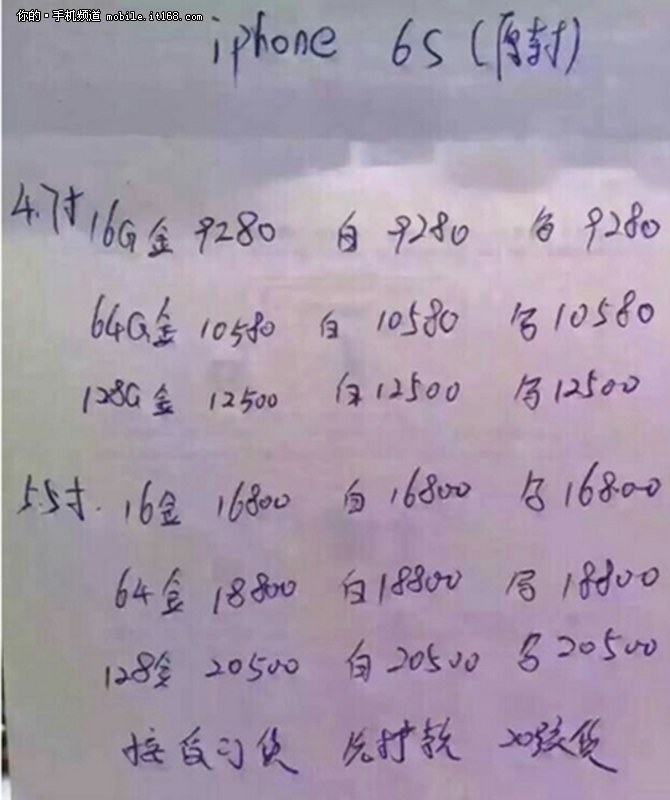 你的·手机频道 mobile.it168.com
iphone 6S (原封)
4.7寸 16G金 9280 白 9280 9280
64G金 10580 白 10580 10580
128G金 12500 白 12500 12500
5.5寸. 16金 16800 白 16800 16800
64金 18800 白 18800 18800
128金 20500 白 20500 20500
接受订货 先打款